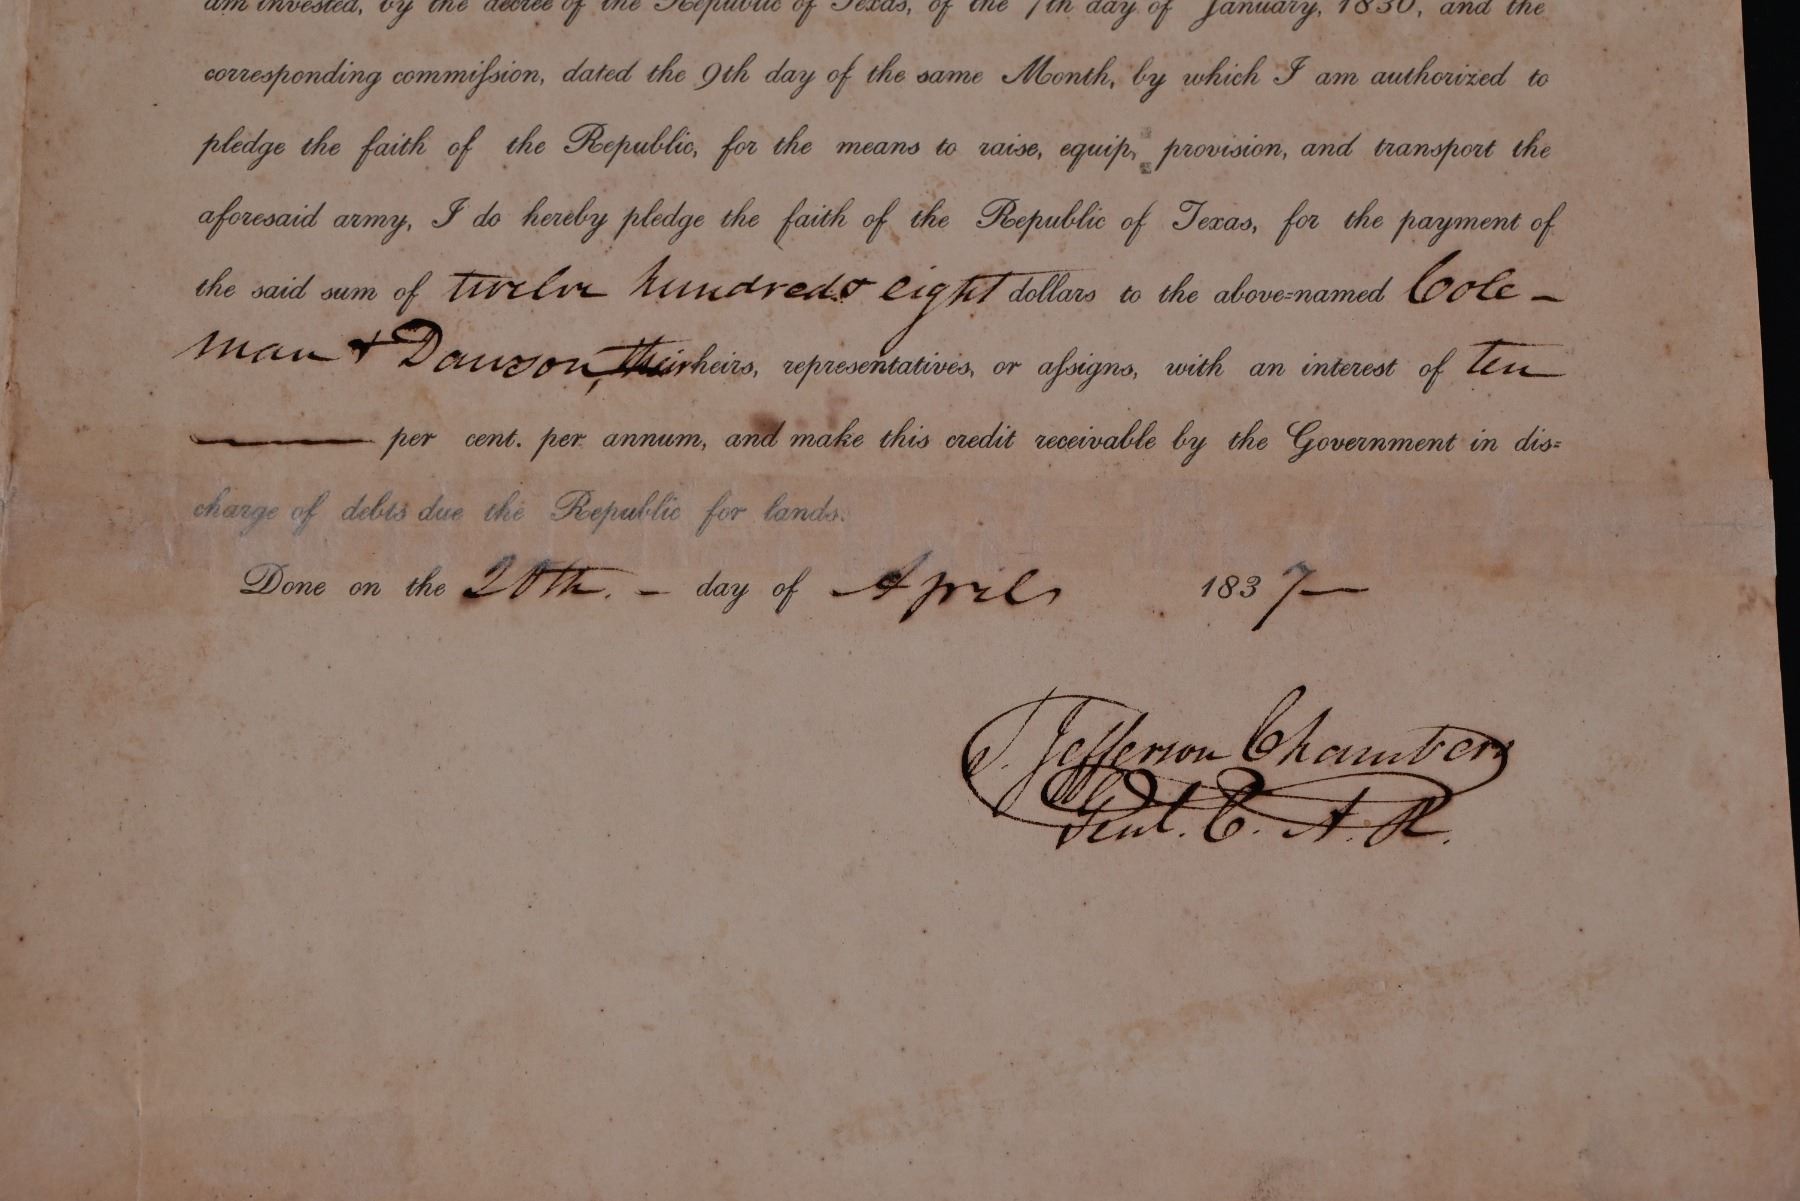 am invested, by the decree of the Republic of Texas, of the 7th day of January, 1836, and the
corresponding commiſsion, dated the 9th day of the same Month, by which I am authorized to
pledge the faith of the Republic, for the means to raise, equip, provision, and transport the
aforesaid army, I do hereby pledge the faith of the Republic of Texas, for the payment of
the said sum of twelve hundred & eight dollars to the above=named Cole -
man & Dawson, their heirs, representatives, or aſsigns, with an interest of ten
per cent. per annum, and make this credit receivable by the Government in dis=
charge of debts due the Republic for lands.
Done on the 20th. - day of April 1837
T. Jefferson Chambers
Genl. C. A. R.